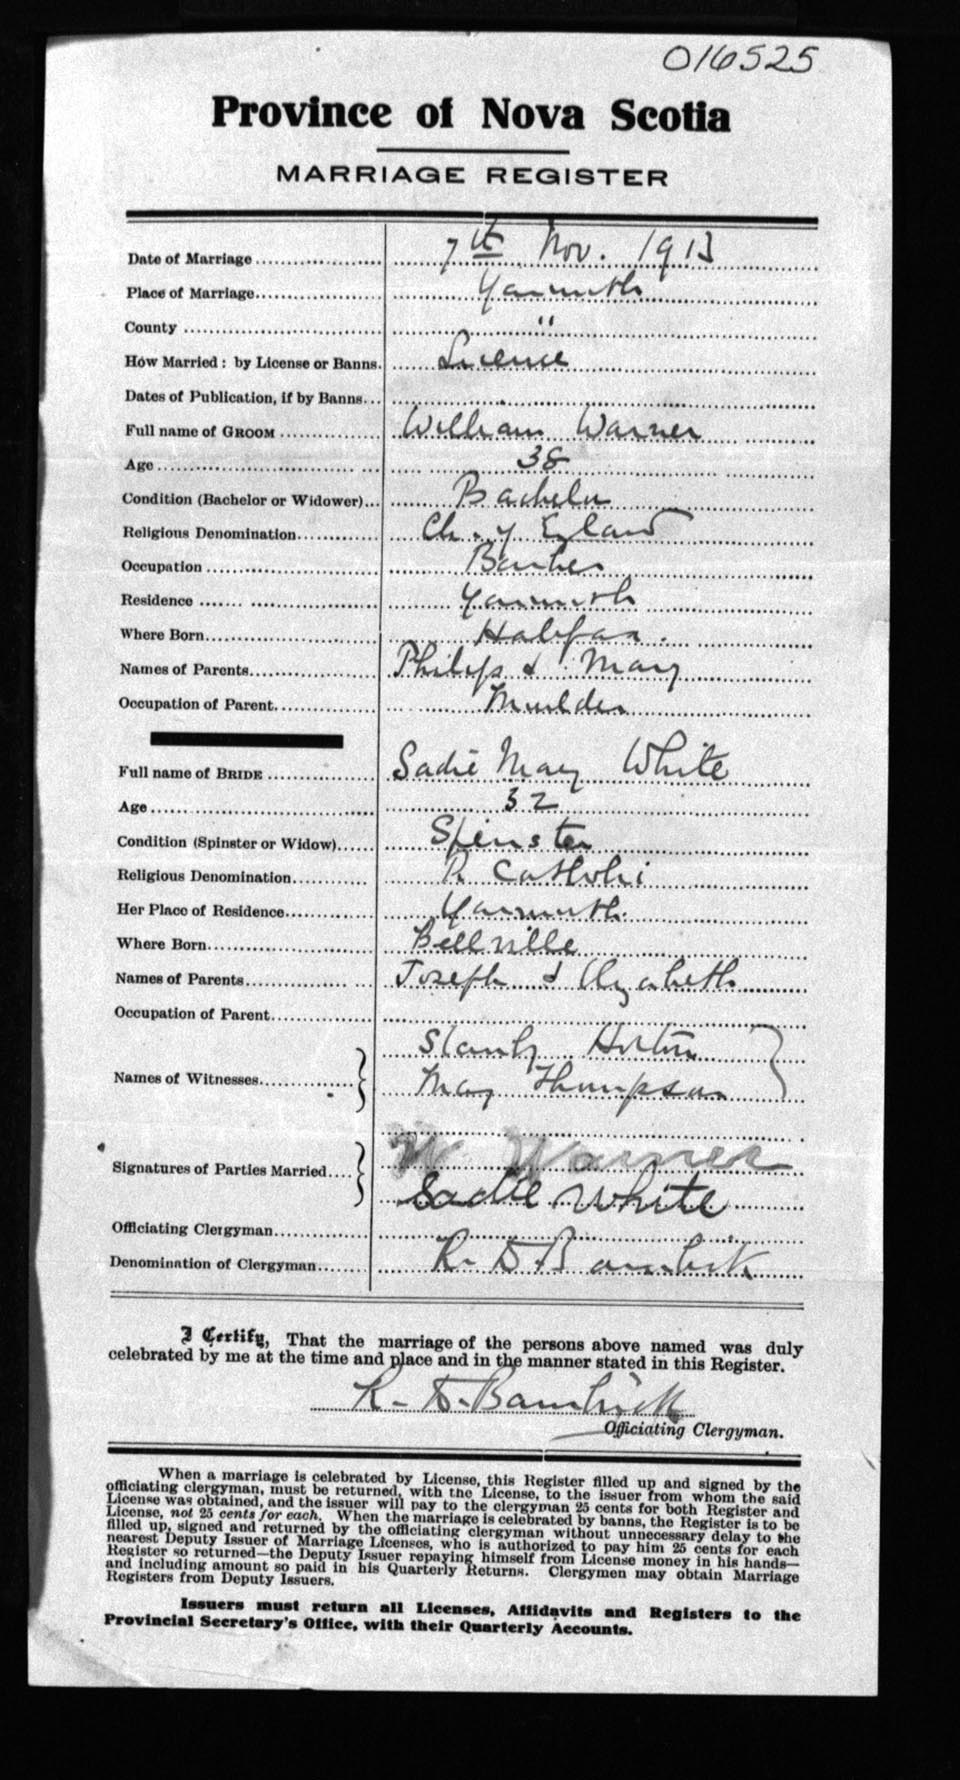 016525
Province of Nova Scotia
MARRIAGE REGISTER
Date of Marriage 7th Nov. 1913
Place of Marriage Yarmouth
County "
How Married: by License or Banns. Licence
Dates of Publication, if by Banns
Full name of GROOM William Warner
Age 38
Condition (Bachelor or Widower) Bachelor
Religious Denomination Ch. of England
Occupation Barber
Residence Yarmouth
Where Born Halifax.
Names of Parents Philip & Mary
Occupation of Parent Moulder
Full name of BRIDE Sadie May White
Age 32
Condition (Spinster or Widow) Spinster
Religious Denomination R Catholic
Her Place of Residence Yarmouth.
Where Born Bellville
Names of Parents Joseph & Elizabeth
Occupation of Parent
Names of Witnesses Stanly Horton
May Thompson
Signatures of Parties Married W Warner
Sadie White
Officiating Clergyman
Denomination of Clergyman R. D. Bambrick
I Certify, That the marriage of the persons above named was duly
celebrated by me at the time and place and in the manner stated in this Register.
R. D. Bambrick
Officiating Clergyman.
When a marriage is celebrated by License, this Register filled up and signed by the
officiating clergyman, must be returned, with the License, to the issuer from whom the said
License was obtained, and the issuer will pay to the clergyman 25 cents for both Register and
License, not 25 cents for each. When the marriage is celebrated by banns, the Register is to be
filled up, signed and returned by the officiating clergyman without unnecessary delay to the
nearest Deputy Issuer of Marriage Licenses, who is authorized to pay him 25 cents for each
Register so returned—the Deputy Issuer repaying himself from License money in his hands—
and including amount so paid in his Quarterly Returns. Clergymen may obtain Marriage
Registers from Deputy Issuers.
Issuers must return all Licenses, Affidavits and Registers to the
Provincial Secretary's Office, with their Quarterly Accounts.